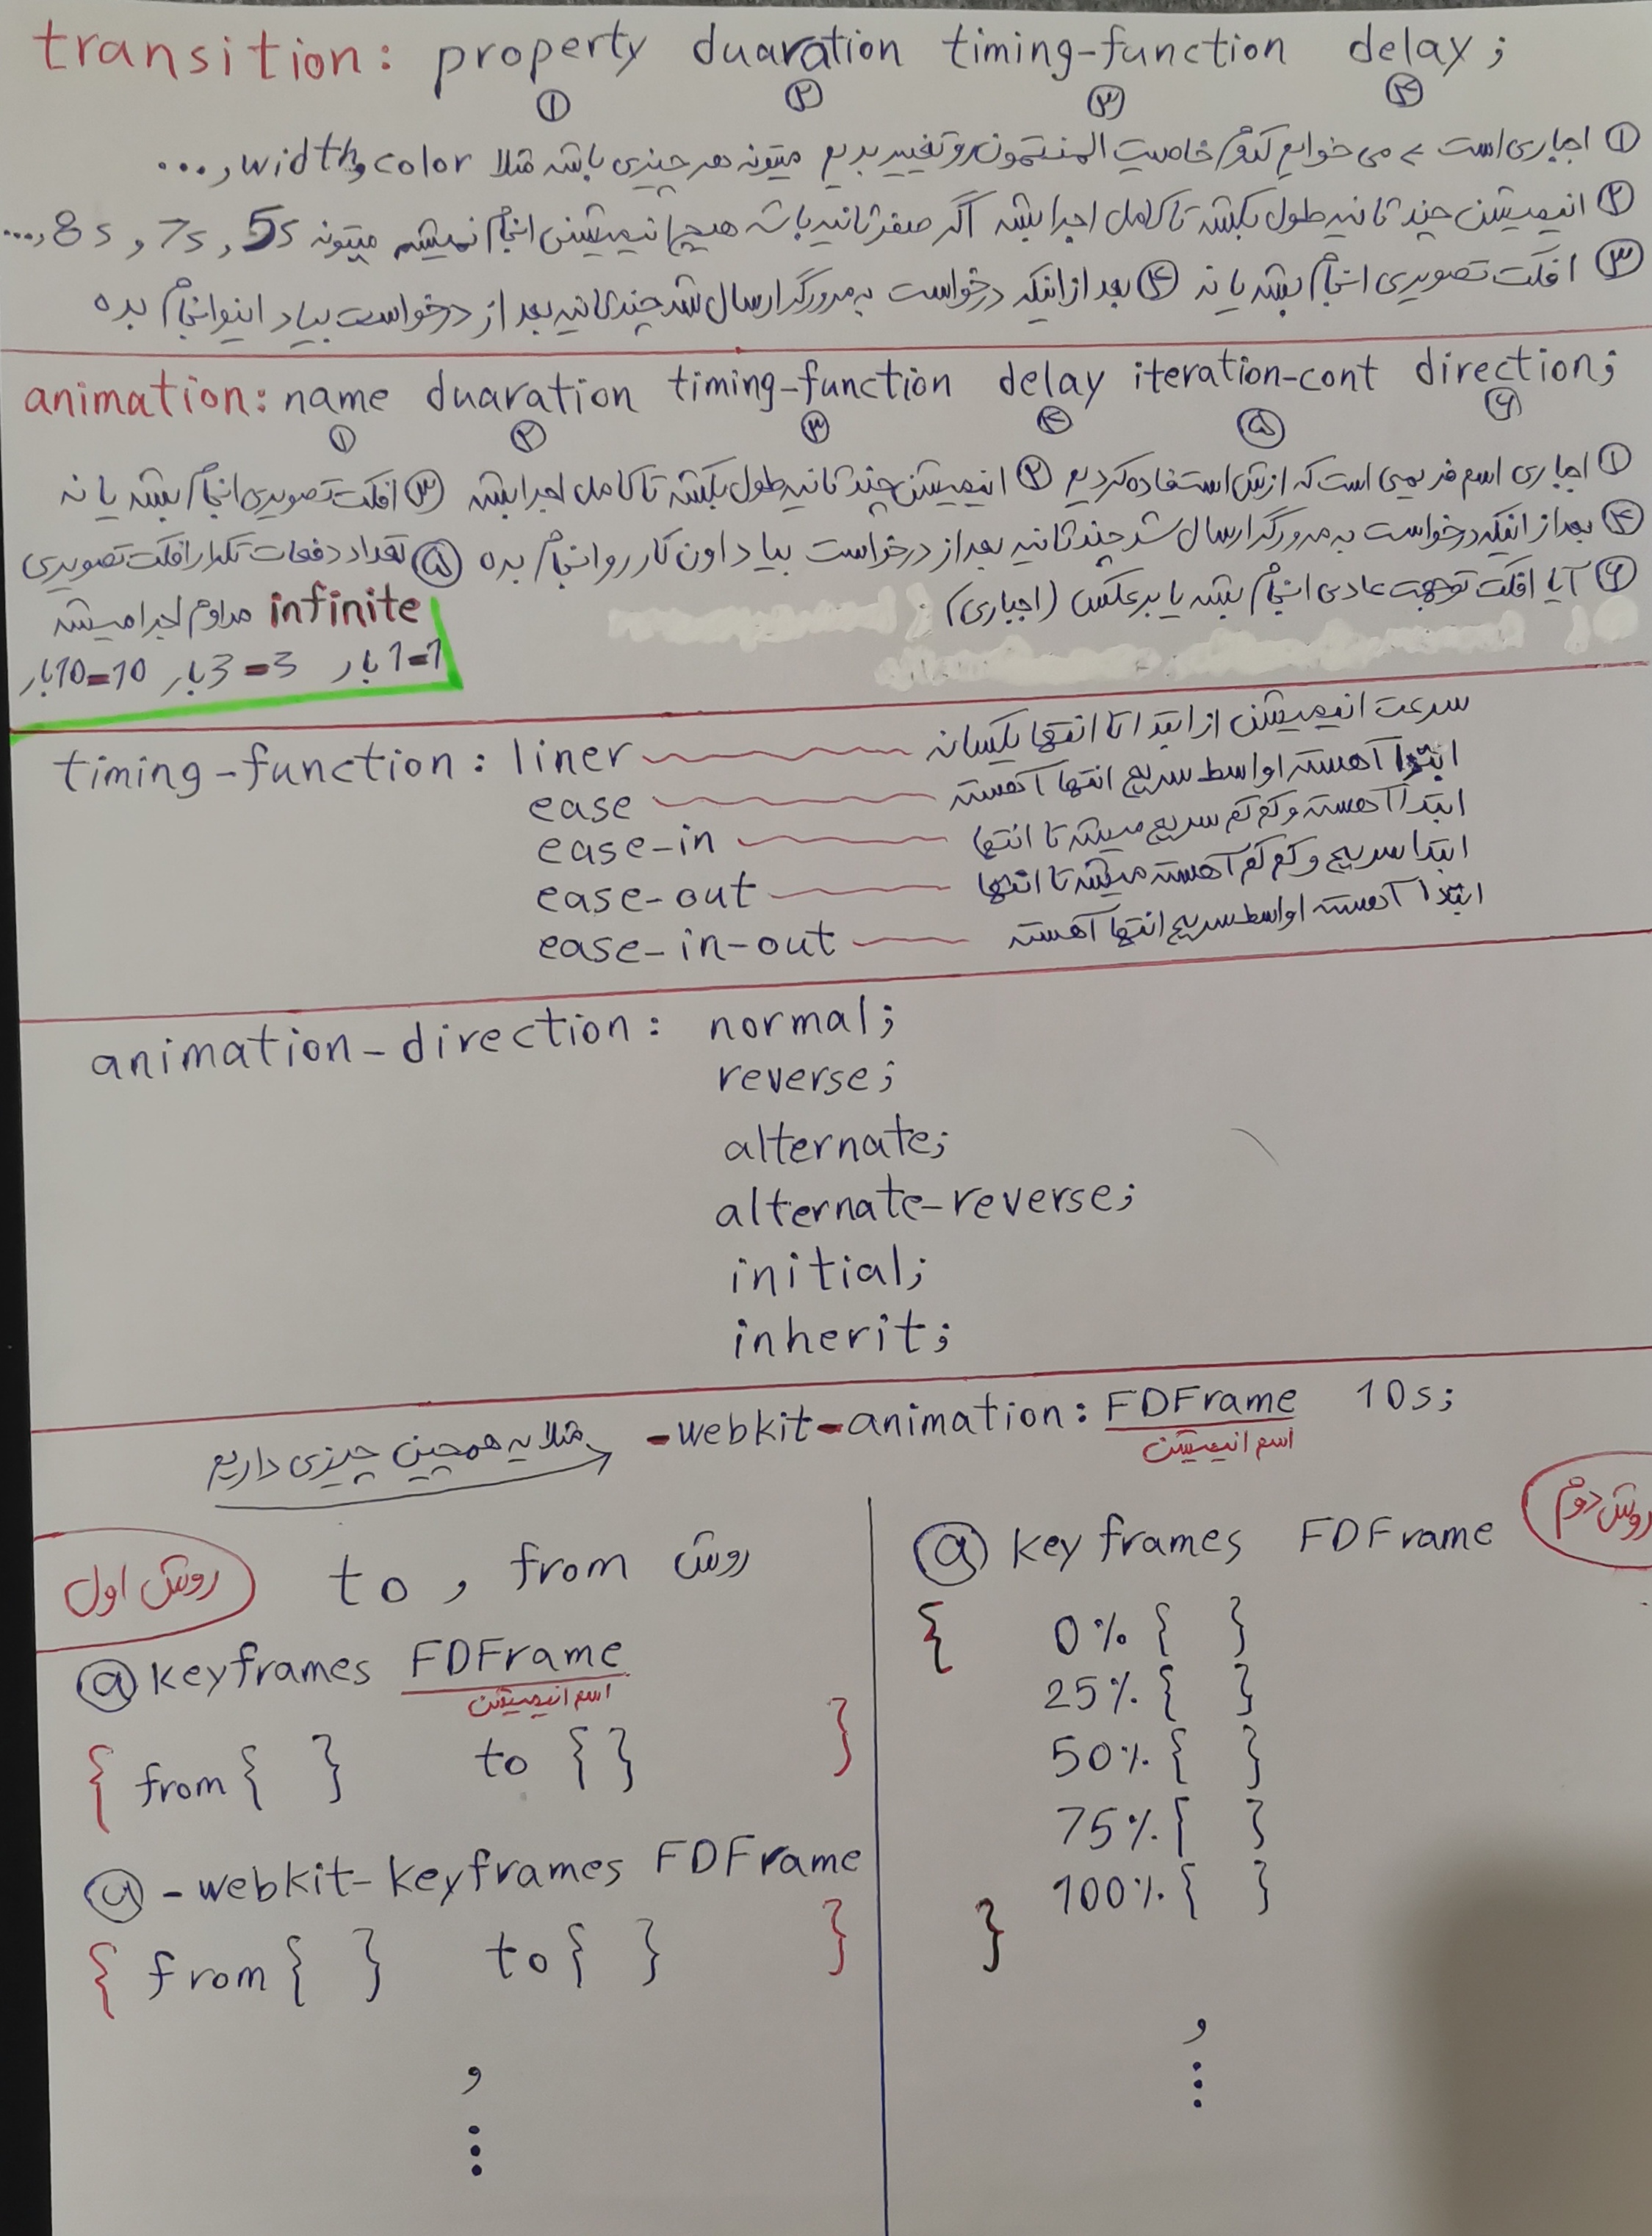 transition: property duaration timing-function delay;
① ② ③ ④
① اجباری است => می خوایم کدوم خاصیت المنتمون رو تغییر بدیم میتونه هر چیزی باشه مثلا color و width و ...
② انیمیشن چند ثانیه طول بکشه تا کامل اجرا بشه اگر صفر ثانیه باشه هیچ انیمیشنی انجام نمیشه میتونه 5s و 7s و 8s و ...
③ افکت تصویری انجام بشه یا نه ④ بعد از اینکه درخواست به مرورگر ارسال شد چند ثانیه بعد از درخواست بیاد اینو انجام بده
animation: name duaration timing-function delay iteration-cont direction;
① ② ③ ④ ⑤ ⑥
① اجباری اسم فریمی است که ازش استفاده کردیم ② انیمیشن چند ثانیه طول بکشه تا کامل اجرا بشه ③ افکت تصویری انجام بشه یا نه
④ بعد از اینکه درخواست به مرورگر ارسال شد چند ثانیه بعد از درخواست بیاد اون کار رو انجام بده ⑤ تعداد دفعات تکرار افکت تصویری
⑥ آیا افکت توجهت عادی انجام بشه یا برعکس (اجباری)
infinite مداوم اجرا میشه
1=1 بار 3=3 بار 10=10 بار
timing-function: liner سرعت انیمیشن از ابتدا تا انتها یکسانه
ease ابتدا آهسته اواسط سریع انتها آهسته
ease-in ابتدا آهسته و کم کم سریع میشه تا انتها
ease-out ابتدا سریع و کم کم آهسته میشه تا انتها
ease-in-out ابتدا آهسته اواسط سریع انتها آهسته
animation-direction: normal;
reverse;
alternate;
alternate-reverse;
initial;
inherit;
مثلا یه همچین چیزی داریم -webkit-animation: FDFrame 10s;
اسم انیمیشن
روش اول
روش from و to
@keyframes FDFrame
اسم انیمیشن
{ from{ } to { } }
@-webkit-keyframes FDFrame
{ from{ } to{ } }
و
...
روش دوم
@keyframes FDFrame
{ 0% { }
25% { }
50% { }
75% { }
100% { }
}
و
...